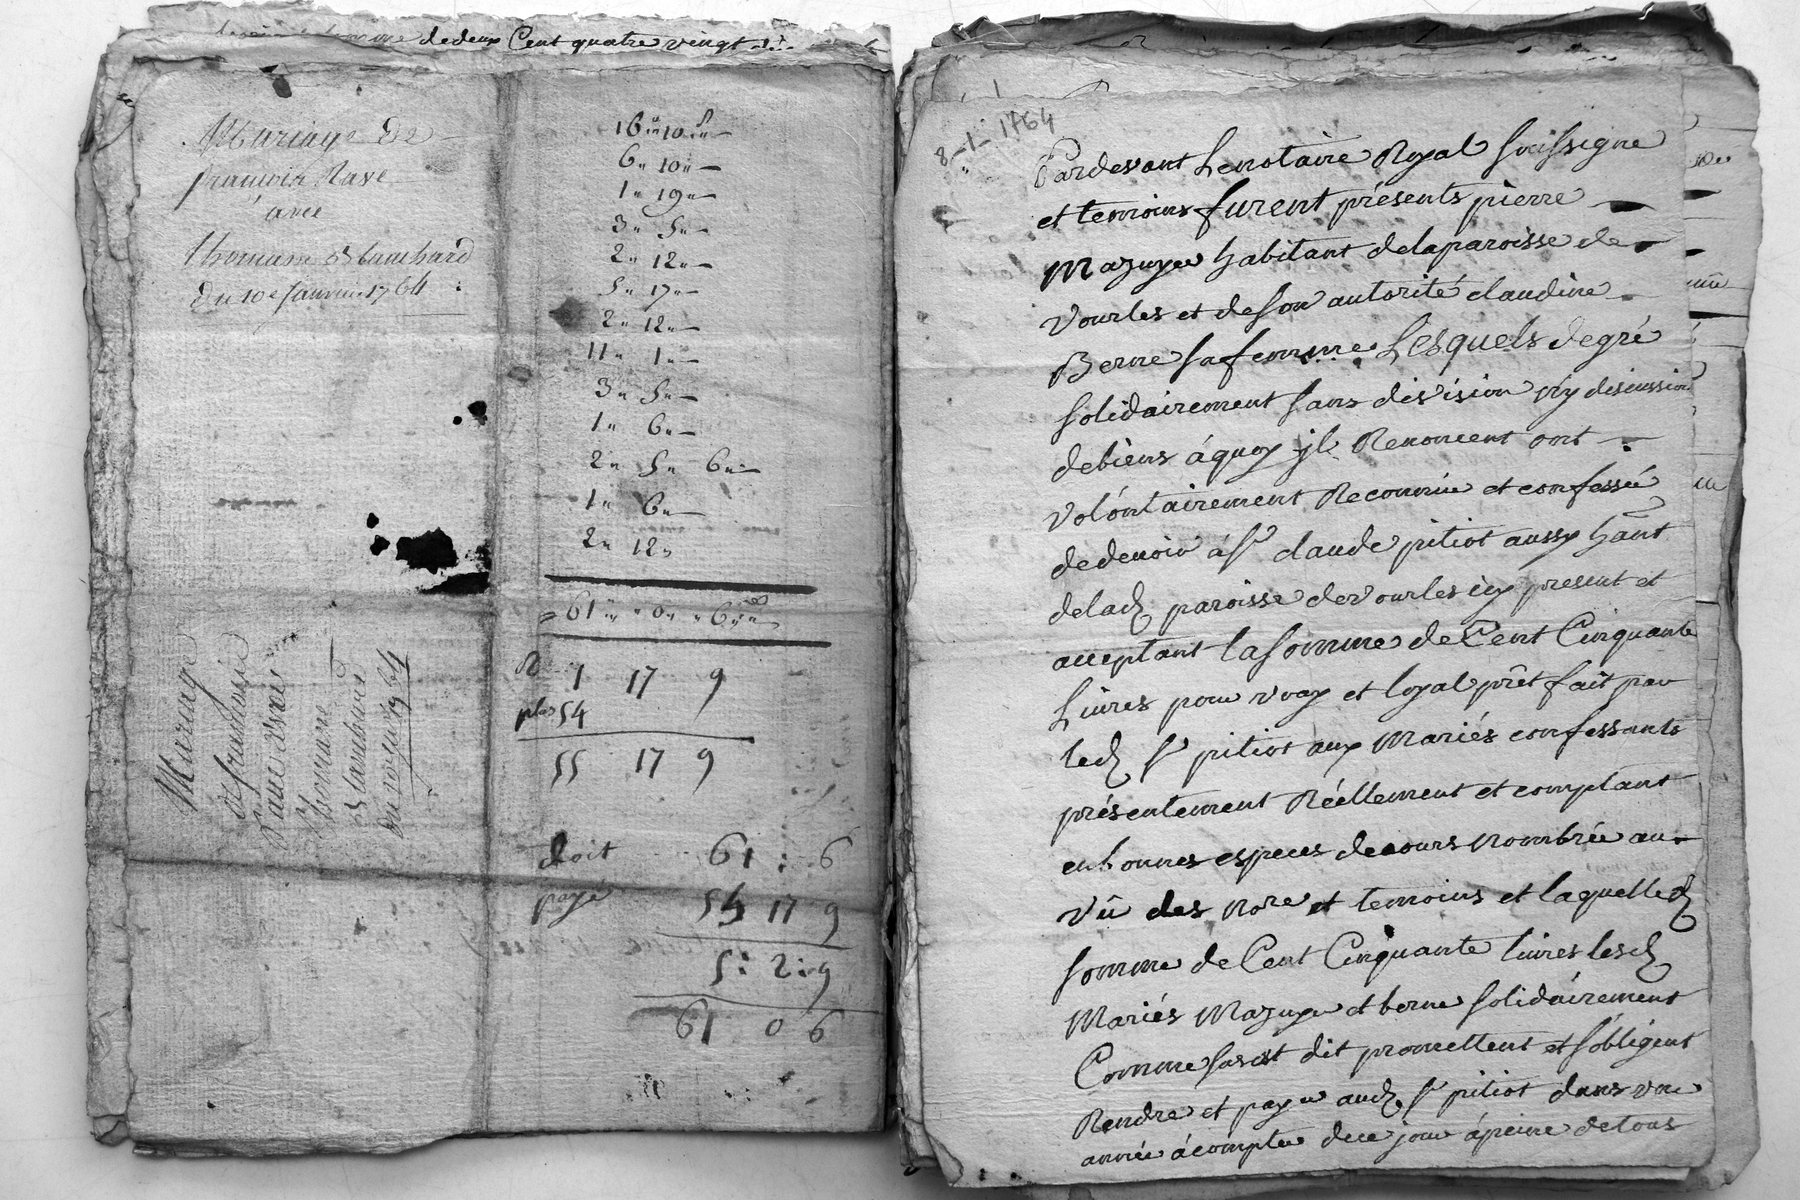 dedeux Cent quatre vingt
Mariage De
francois Rave
avec
thomasse Blanchard
Du 10e Janvier 1764
16" 10s"
6" 10"
1" 19"
3" 5"
2" 12"
5" 17"
2" 12"
11" 1"
3" 5"
1" 6"
2" 5" 6"
1" 6"
2" 12"
61" 0" 6"
R 1 17 9
plus 54
55 17 9
doit 61 : 6
payé 55 17 9
5: 2: 9
61 0 6
Mariage
Thomasse
Blanchard
8-1-1764
Pardevant Le notaire Royal Soussigne
et temoins furent présents pierre
Mazuyer habitant delaparoisse de
Vourles et de Son autorité claudine
Berne Sa femme Lesquels de gré
Solidairement Sans division ny discussion
de biens á quoy jls Renoncent ont
Volontairement Reconnu et confessé
de devoir á Sr claude pitiot aussy hant
de lad paroisse de vourles icy present et
acceptant la Somme de Cent Cinquante
Livres pour vray et loyal prêt fait par
led Sr pitiot aux Mariés confessants
présentement Réellement et comptant
en bonnes especes de cours Nombrée au
Vû des Nore et temoins et laquelle d
Somme de Cent Cinquante livres lesd
Mariés Mazuyer et berne Solidairement
Comme Sus est dit promettent et S'obligent
Rendre et payer aud Sr pitiot dans une
année á compter de ce jour á peine de tous